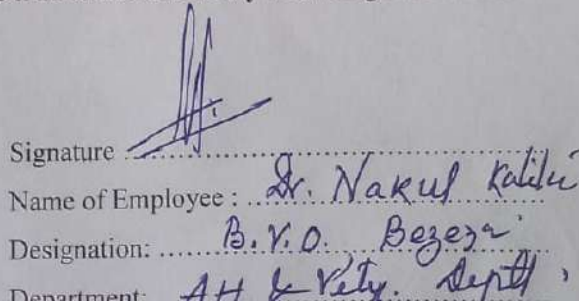 Signature
Name of Employee : Dr. Nakul Kalita
Designation: B.V.O. Bezera
Department: AH & Vety. Deptt.